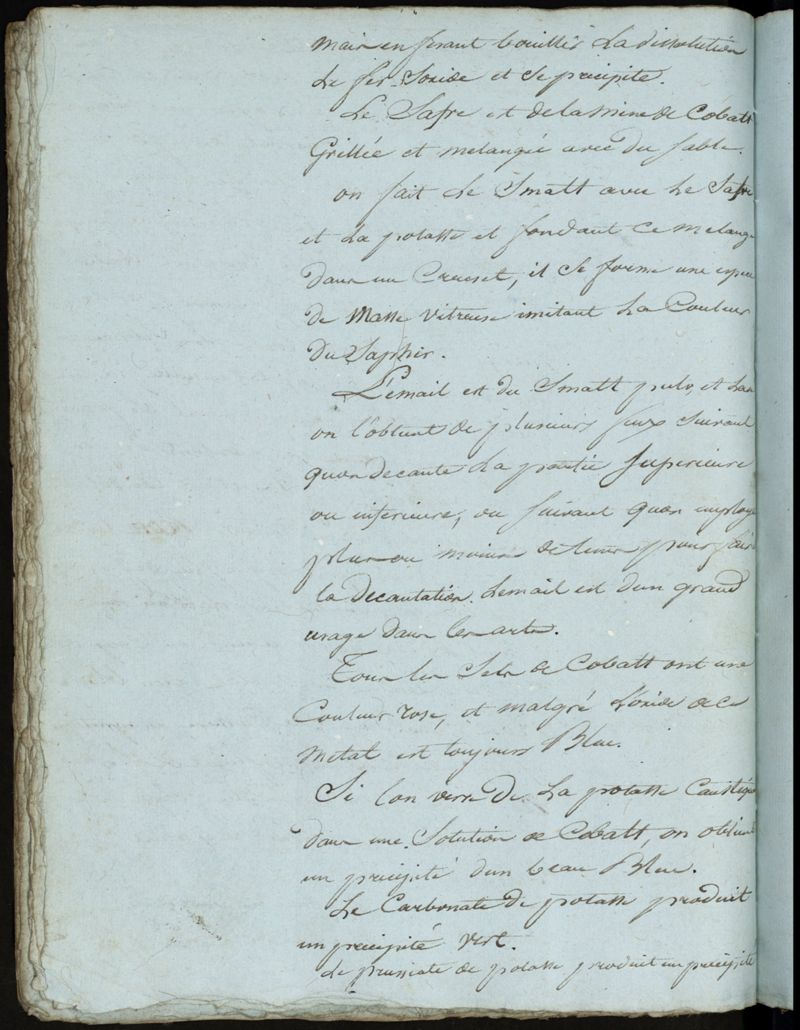 mais en fesant bouillir La dissolution
Le fer Soxide et Se précipite.
Le Safre est de la mine de Cobalt
Grillée et melangée avec du sable.
on fait Le Smalt avec Le Safre
et La potasse et fondant Ce melange
dans un Creuset, il Se forme une espece
de Masse vitreuse imitant La Couleur
du Saphir.
L'email est du Smalt pulv. et
on l'obtient de plusieurs suivant
quon decante La partie Superieure
ou inferieure, ou suivant quon employe
plus ou moins de tems pour faire
la decantation. Lemail est d'un grand
usage dans les arts.
Tous les Sels de Cobalt ont une
Couleur rose, et malgré L'oxide de ce
metal est toujours Bleu.
Si l'on verse de La potasse Caustique
dans une Solution de Cobalt, on obtient
un precipité d'un beau Bleu.
Le Carbonate de potasse produit
un precipité vert.
Le prussiate de potasse produit un precipité